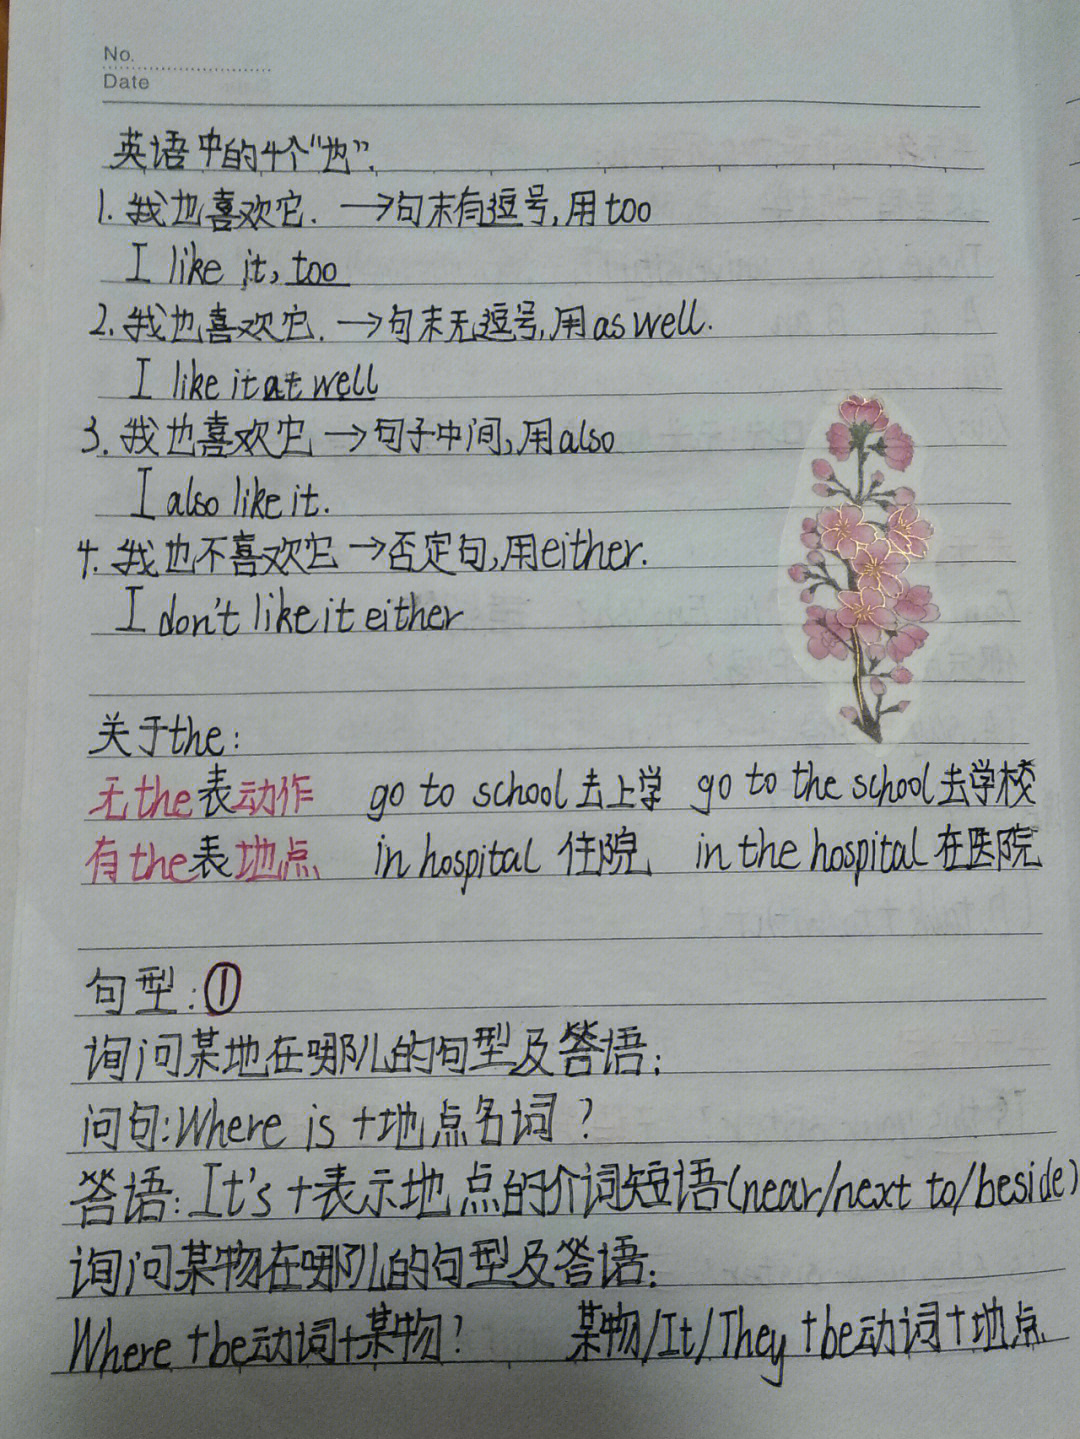 No.
Date
英语中的4个“也”.
1. 我也喜欢它. →句末有逗号,用too
I like it, too
2. 我也喜欢它. →句末无逗号,用as well.
I like it at well
3. 我也喜欢它 →句子中间,用also
I also like it.
4. 我也不喜欢它 →否定句,用either.
I don't like it either
关于the:
无the表动作 go to school 去上学 go to the school 去学校
有the表地点 in hospital 住院 in the hospital 在医院
句型:①
询问某地在哪儿的句型及答语:
问句:Where is +地点名词 ?
答语: It's +表示地点的介词短语(near/next to/beside)
询问某物在哪儿的句型及答语:
Where +be动词+某物? 某物/It/They +be动词+地点.